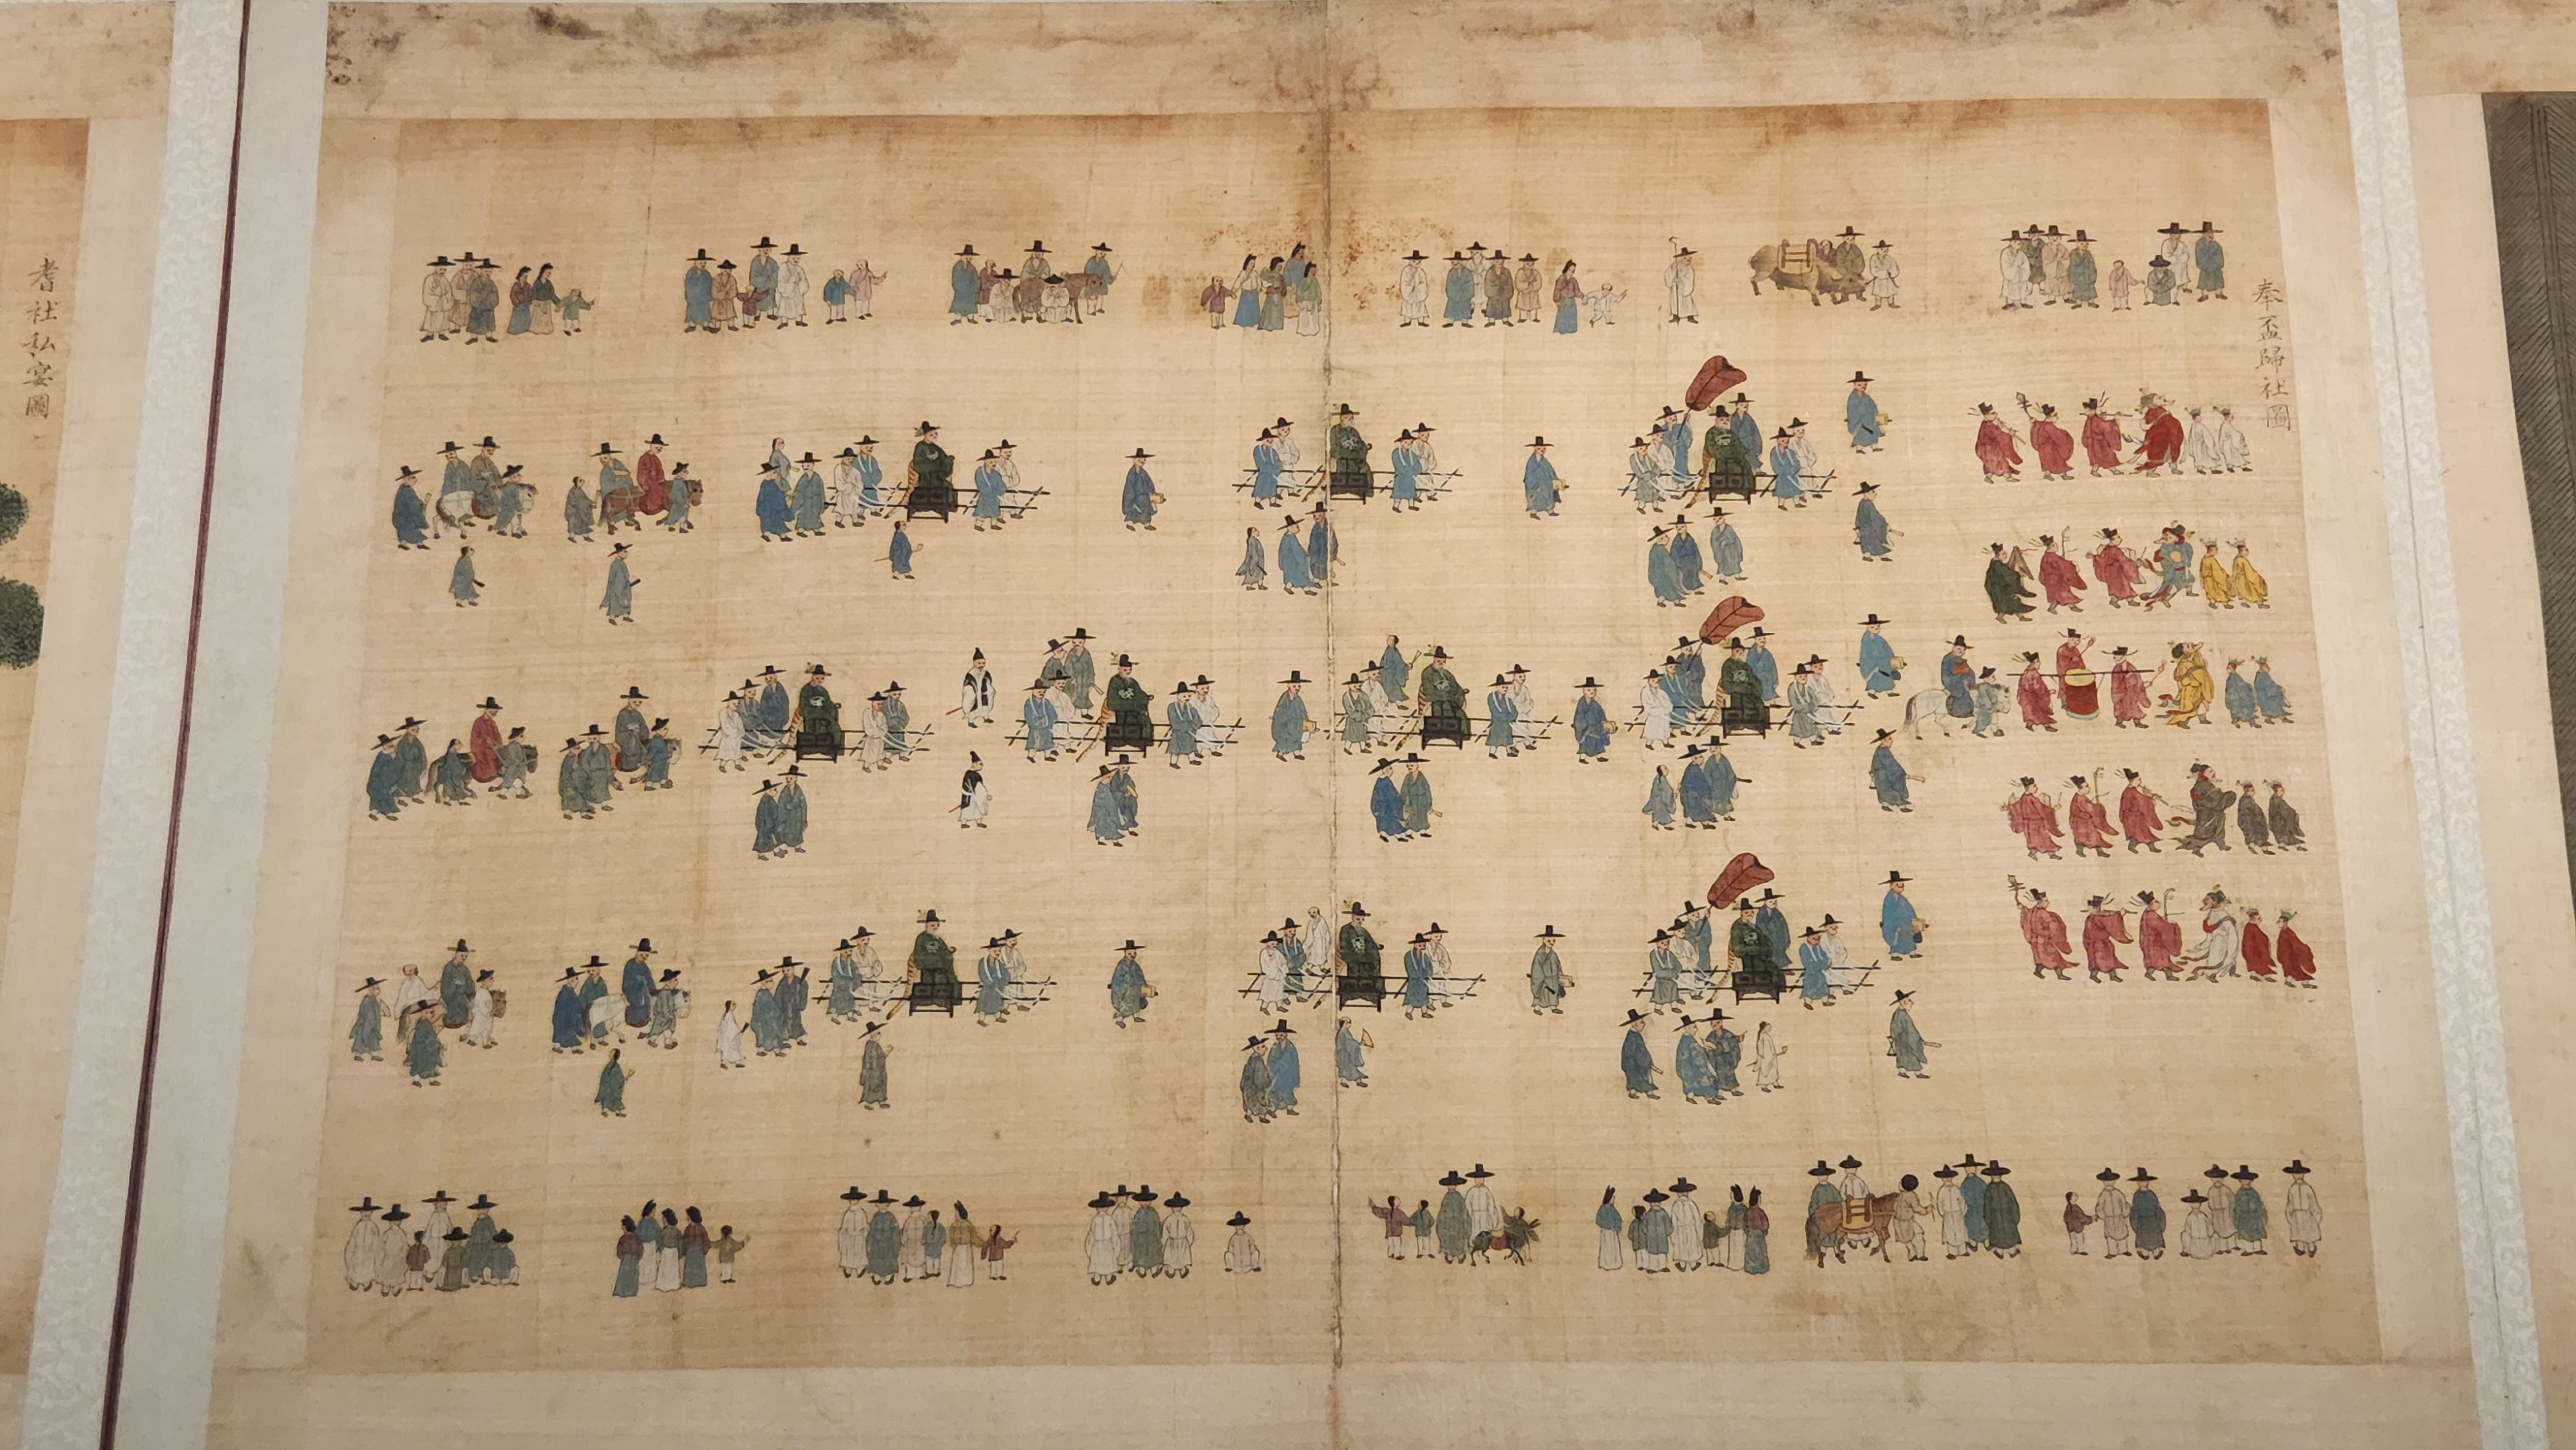 奉盃歸社圖
耆社私宴圖